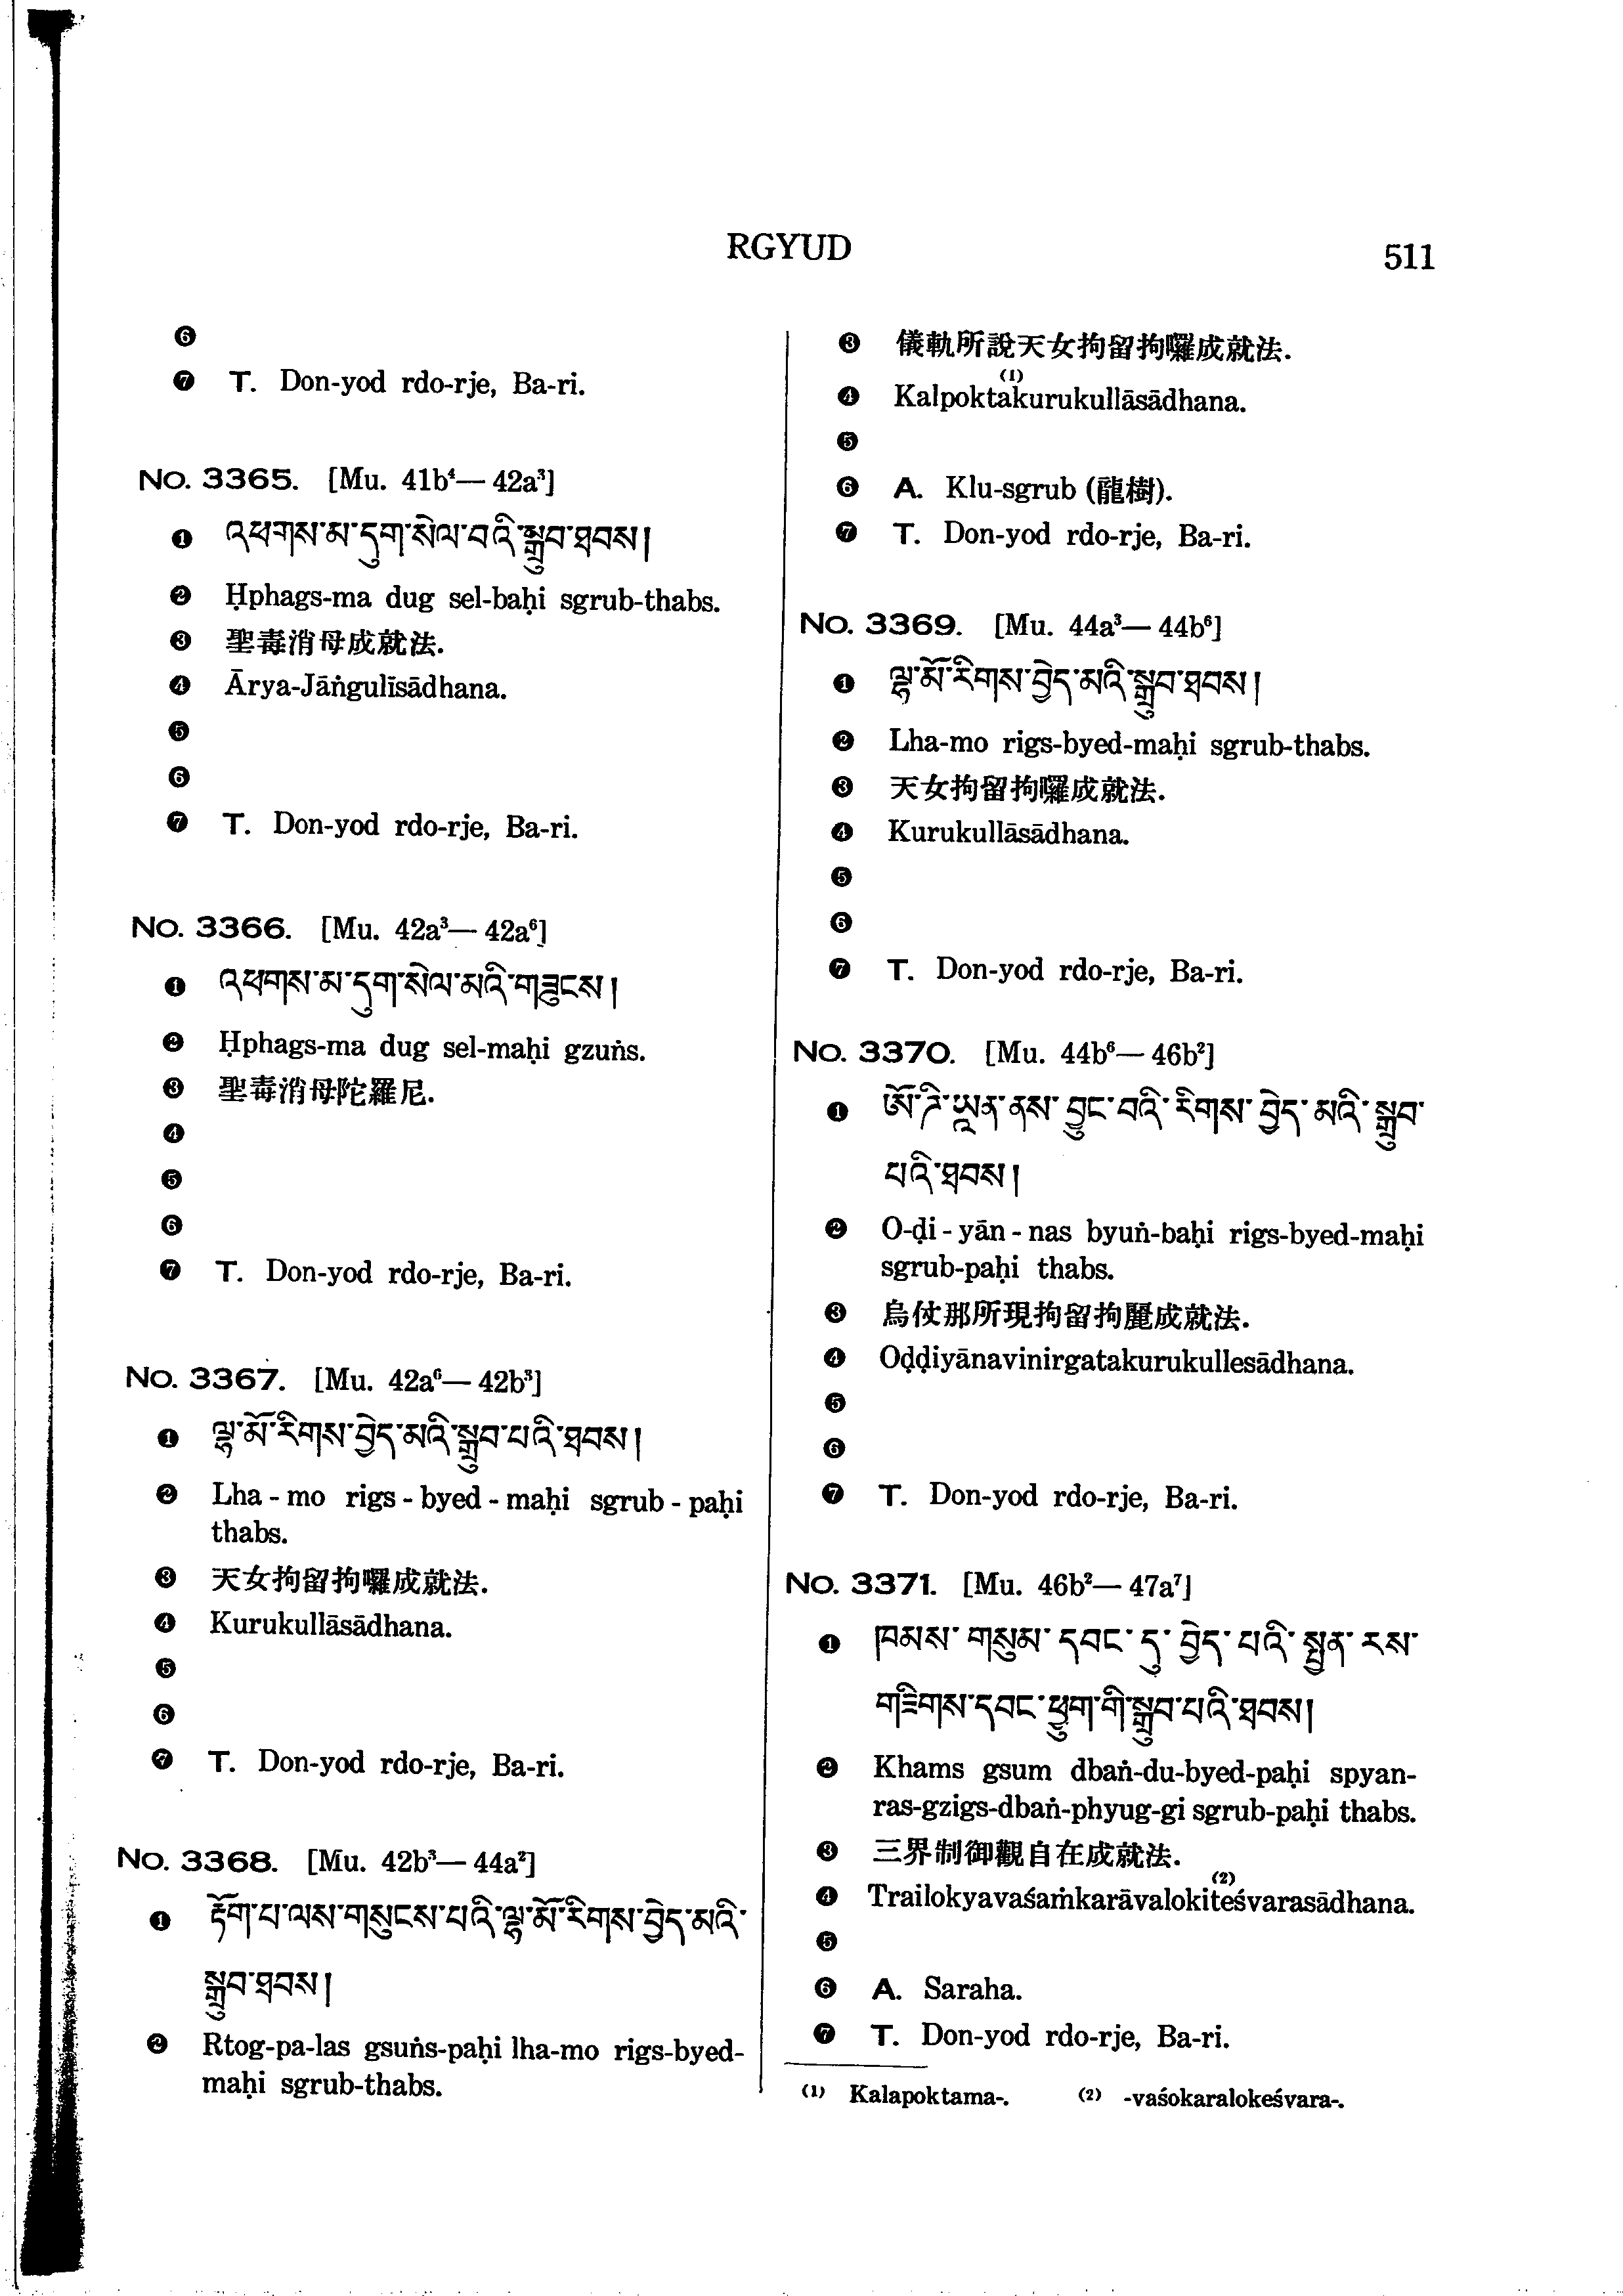 RGYUD
511
❻
❼ T. Don-yod rdo-rje, Ba-ri.
No. 3365. [Mu. 41b⁴— 42a³]
❶ འཕགས་མ་དུག་སེལ་བའི་སྒྲུབ་ཐབས།
❷ Ḥphags-ma dug sel-baḥi sgrub-thabs.
❸ 聖毒消母成就法.
❹ Ārya-Jāṅgulīsādhana.
❺
❻
❼ T. Don-yod rdo-rje, Ba-ri.
No. 3366. [Mu. 42a³— 42a⁶]
❶ འཕགས་མ་དུག་སེལ་མའི་གཟུངས།
❷ Ḥphags-ma dug sel-maḥi gzuṅs.
❸ 聖毒消母陀羅尼.
❹
❺
❻
❼ T. Don-yod rdo-rje, Ba-ri.
No. 3367. [Mu. 42a⁶— 42b³]
❶ ལྷ་མོ་རིགས་བྱེད་མའི་སྒྲུབ་པའི་ཐབས།
❷ Lha - mo rigs - byed - maḥi sgrub - paḥi
thabs.
❸ 天女拘留拘囉成就法.
❹ Kurukullāsādhana.
❺
❻
❼ T. Don-yod rdo-rje, Ba-ri.
No. 3368. [Mu. 42b³— 44a²]
❶ རྟོག་པ་ལས་གསུངས་པའི་ལྷ་མོ་རིགས་བྱེད་མའི་
སྒྲུབ་ཐབས།
❷ Rtog-pa-las gsuṅs-paḥi lha-mo rigs-byed-
maḥi sgrub-thabs.
❸ 儀軌所說天女拘留拘囉成就法.
❹ Kalpokta⁽¹⁾kurukullāsādhana.
❺
❻ A. Klu-sgrub (龍樹).
❼ T. Don-yod rdo-rje, Ba-ri.
No. 3369. [Mu. 44a³— 44b⁶]
❶ ལྷ་མོ་རིགས་བྱེད་མའི་སྒྲུབ་ཐབས།
❷ Lha-mo rigs-byed-maḥi sgrub-thabs.
❸ 天女拘留拘囉成就法.
❹ Kurukullāsādhana.
❺
❻
❼ T. Don-yod rdo-rje, Ba-ri.
No. 3370. [Mu. 44b⁶— 46b²]
❶ ཨོ་ཌི་ཡཱན་ནས་བྱུང་བའི་རིགས་བྱེད་མའི་སྒྲུབ་
པའི་ཐབས།
❷ O-ḍi - yān - nas byuṅ-baḥi rigs-byed-maḥi
sgrub-paḥi thabs.
❸ 烏仗那所現拘留拘麗成就法.
❹ Oḍḍiyānavinirgatakurukullesādhana.
❺
❻
❼ T. Don-yod rdo-rje, Ba-ri.
No. 3371. [Mu. 46b²— 47a⁷]
❶ ཁམས་གསུམ་དབང་དུ་བྱེད་པའི་སྤྱན་རས་
གཟིགས་དབང་ཕྱུག་གི་སྒྲུབ་པའི་ཐབས།
❷ Khams gsum dbaṅ-du-byed-paḥi spyan-
ras-gzigs-dbaṅ-phyug-gi sgrub-paḥi thabs.
❸ 三界制御觀自在成就法.
❹ Trailokyavaśaṁkarāvalokite⁽²⁾śvarasādhana.
❺
❻ A. Saraha.
❼ T. Don-yod rdo-rje, Ba-ri.
⁽¹⁾ Kalapoktama-. ⁽²⁾ -vaśokaralokeśvara-.